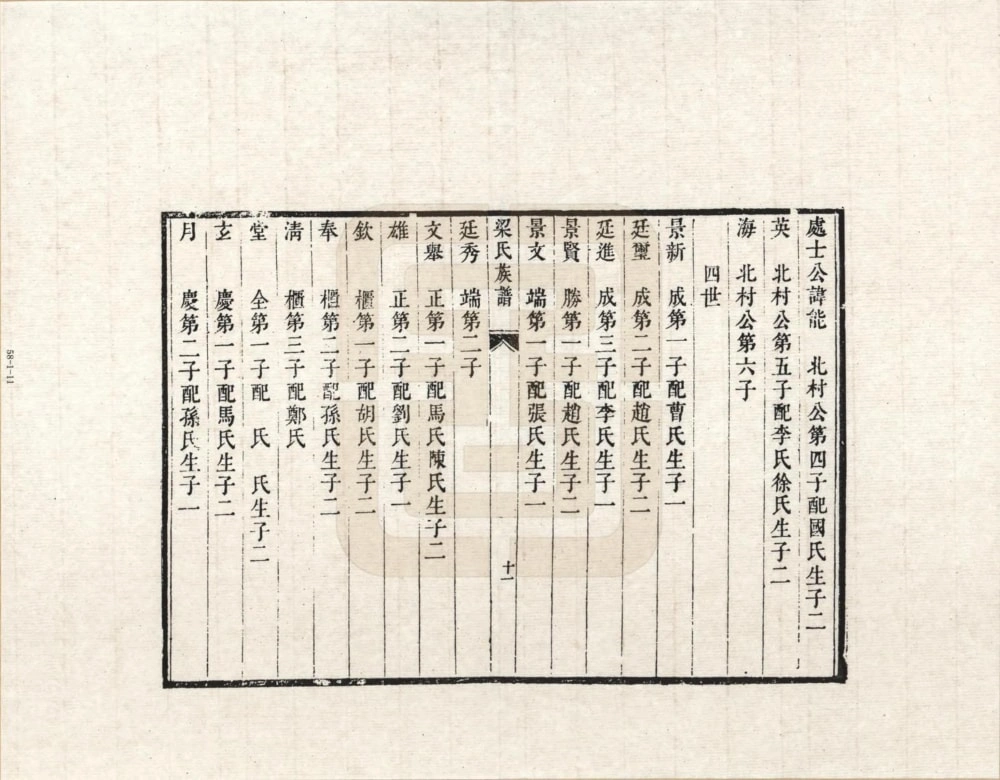 處士公諱能　北村公第四子配國氏生子二
英　北村公第五子配李氏徐氏生子二
海　北村公第六子
四世
景新　成第一子配曹氏生子一
廷璽　成第二子配趙氏生子二
廷進　成第三子配李氏生子一
景賢　勝第一子配趙氏生子二
景文　端第一子配張氏生子一
梁氏族譜　十一
廷秀　端第二子
文舉　正第一子配馬氏陳氏生子二
雄　正第二子配劉氏生子一
欽　櫃第一子配胡氏生子二
奉　櫃第二子配孫氏生子二
清　櫃第三子配鄭氏
堂　全第一子配　氏　氏生子二
玄　慶第一子配馬氏生子二
月　慶第二子配孫氏生子一
58-1-11